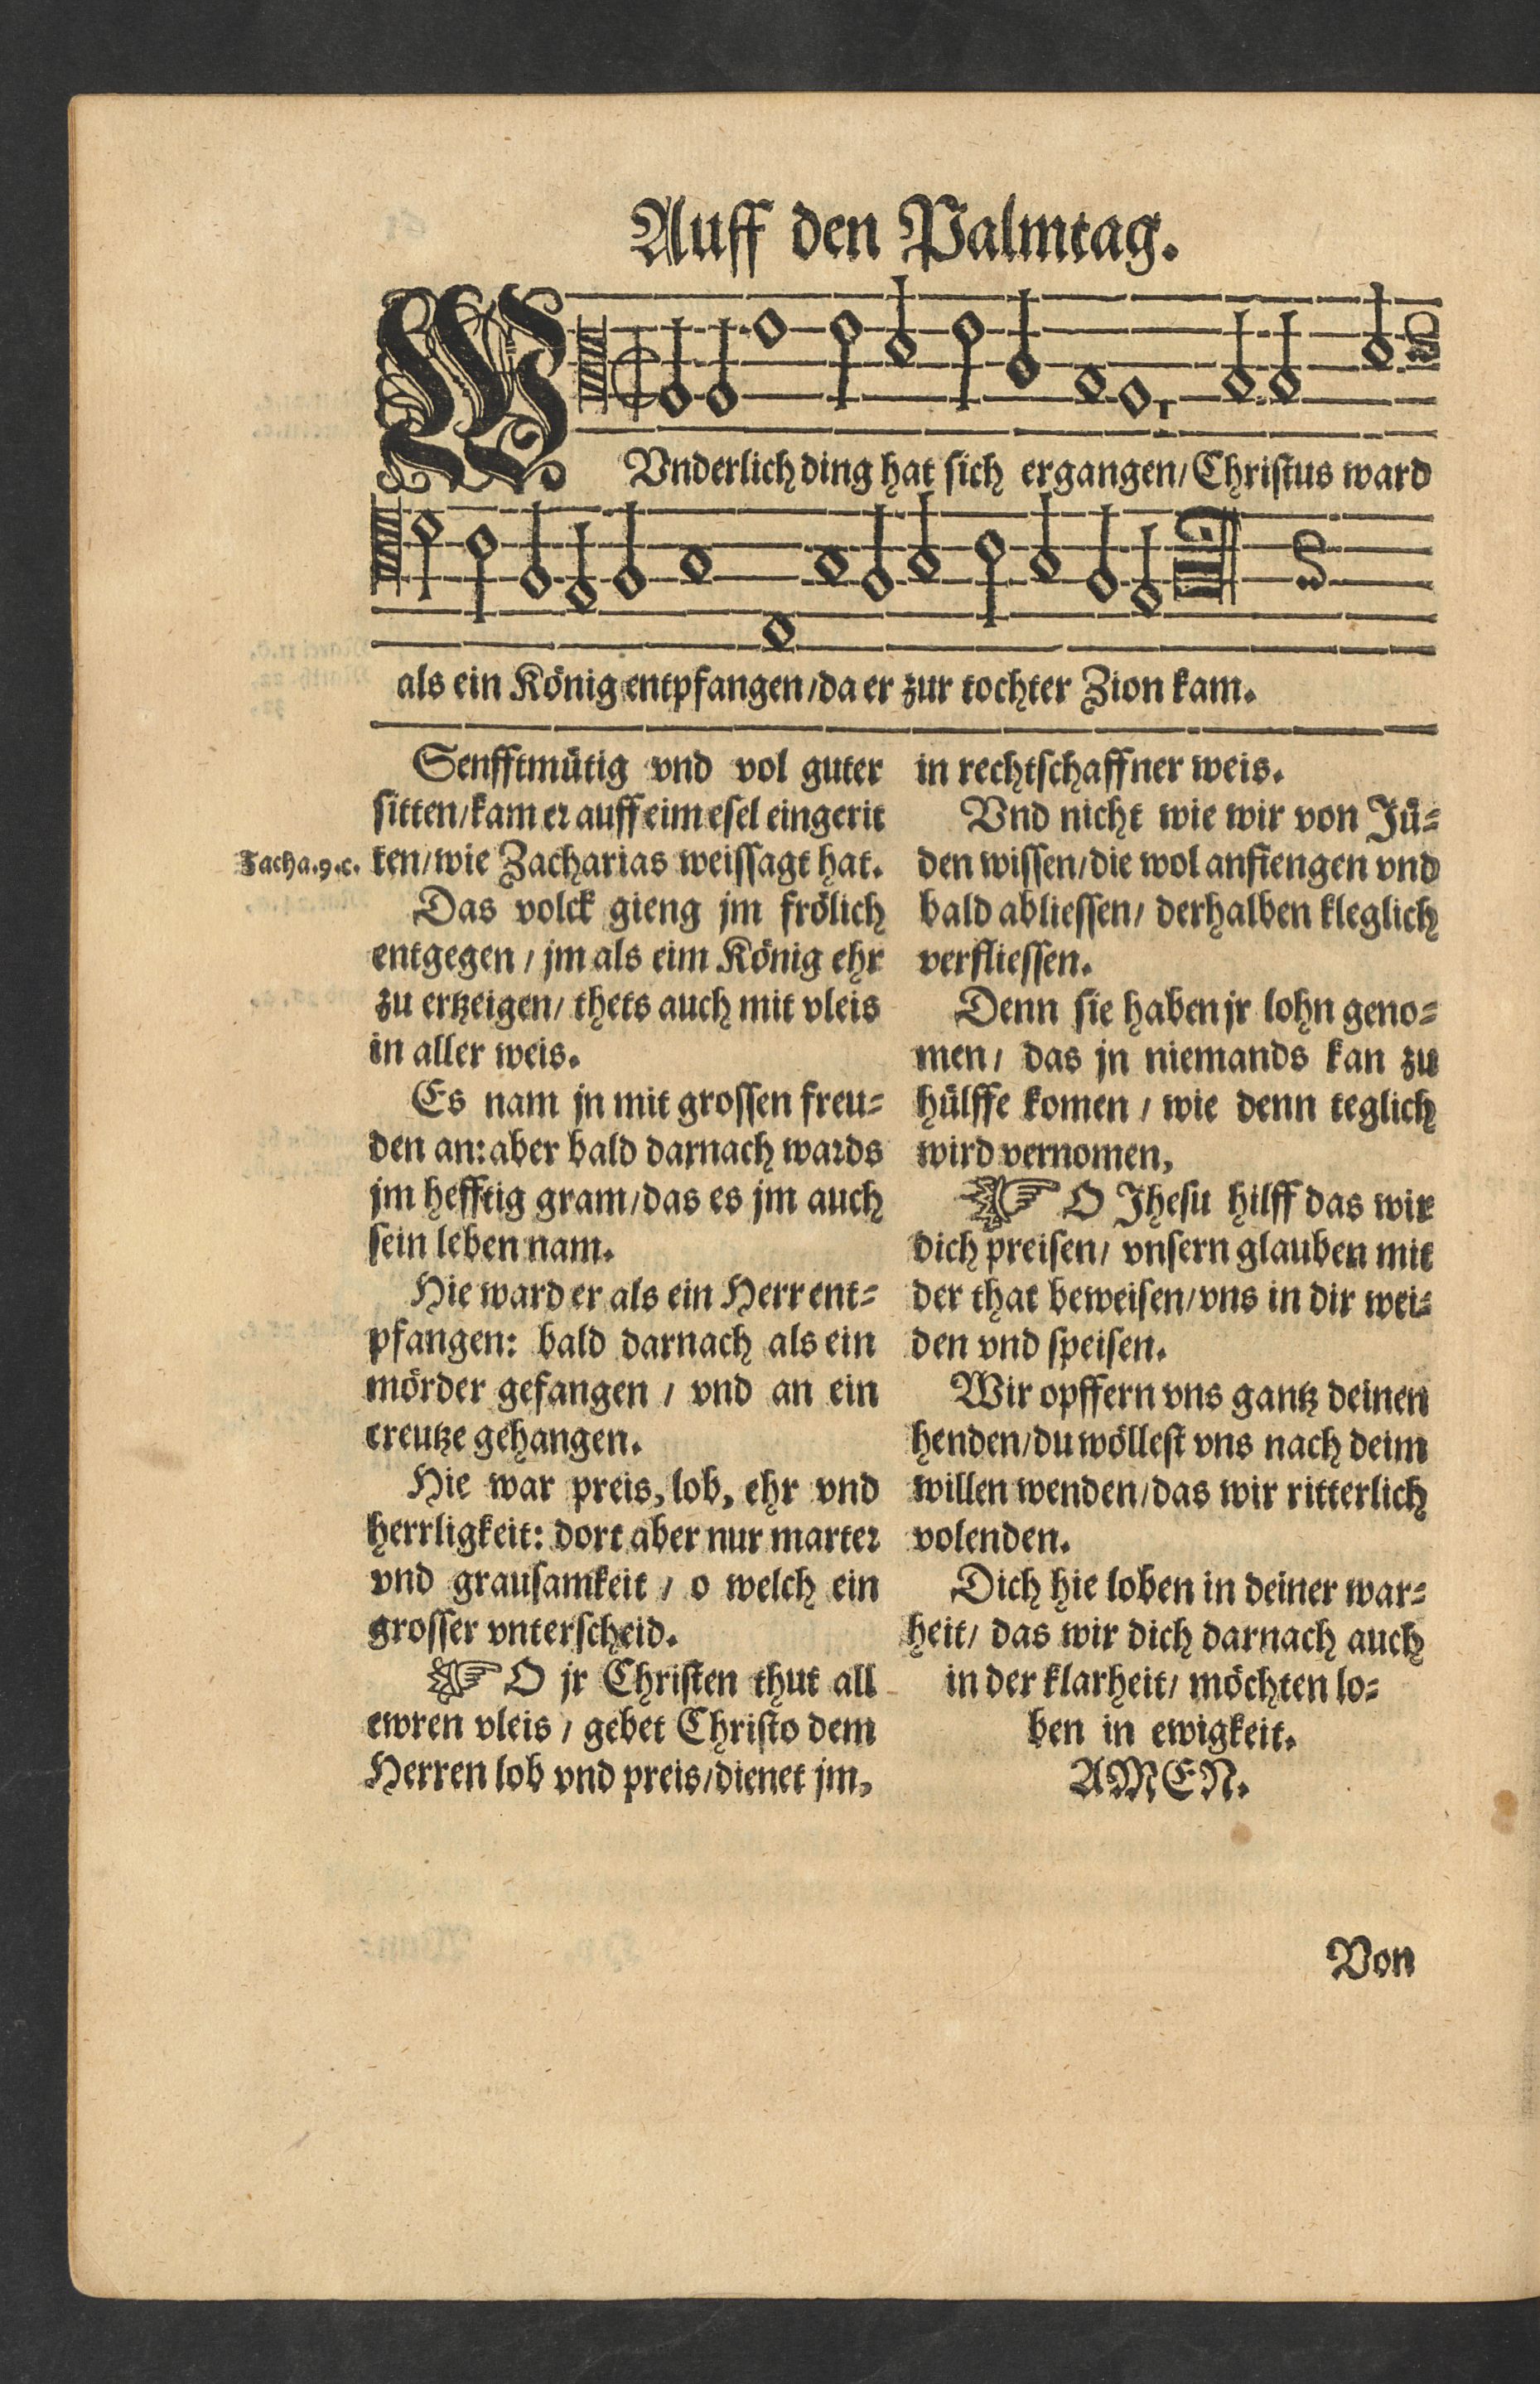 Auff den Palmtag.
WVnderlich ding hat sich ergangen/Christus ward
als ein König entpfangen/da er zur tochter Zion kam.
Senfftmütig vnd vol guter
sitten/kam er auff eim esel eingerit
Zacha.9.c.
ten/wie Zacharias weissagt hat.
Das volck gieng jm frölich
entgegen / jm als eim König ehr
zu ertzeigen/ thets auch mit vleis
in aller weis.
Es nam jn mit grossen freu=
den an: aber bald darnach wards
jm hefftig gram/das es jm auch
sein leben nam.
Hie ward er als ein Herr ent=
pfangen: bald darnach als ein
mörder gefangen / vnd an ein
creutze gehangen.
Hie war preis, lob, ehr vnd
herrligkeit: dort aber nur marter
vnd grausamkeit / o welch ein
grosser vnterscheid.
☞ O jr Christen thut all
ewren vleis / gebet Christo dem
Herren lob vnd preis/dienet jm,
in rechtschaffner weis.
Vnd nicht wie wir von Jü=
den wissen/die wol anfiengen vnd
bald abliessen/ derhalben kleglich
verfliessen.
Denn sie haben jr lohn geno=
men/ das jn niemands kan zu
hülffe komen / wie denn teglich
wird vernomen,
☞ O Jhesu hilff das wir
dich preisen/ vnsern glauben mit
der that beweisen/vns in dir wei=
den vnd speisen.
Wir opffern vns gantz deinen
henden/du wöllest vns nach deim
willen wenden/das wir ritterlich
volenden.
Dich hie loben in deiner war=
heit/ das wir dich darnach auch
in der klarheit/ möchten lo=
ben in ewigkeit.
AMEN.
Von